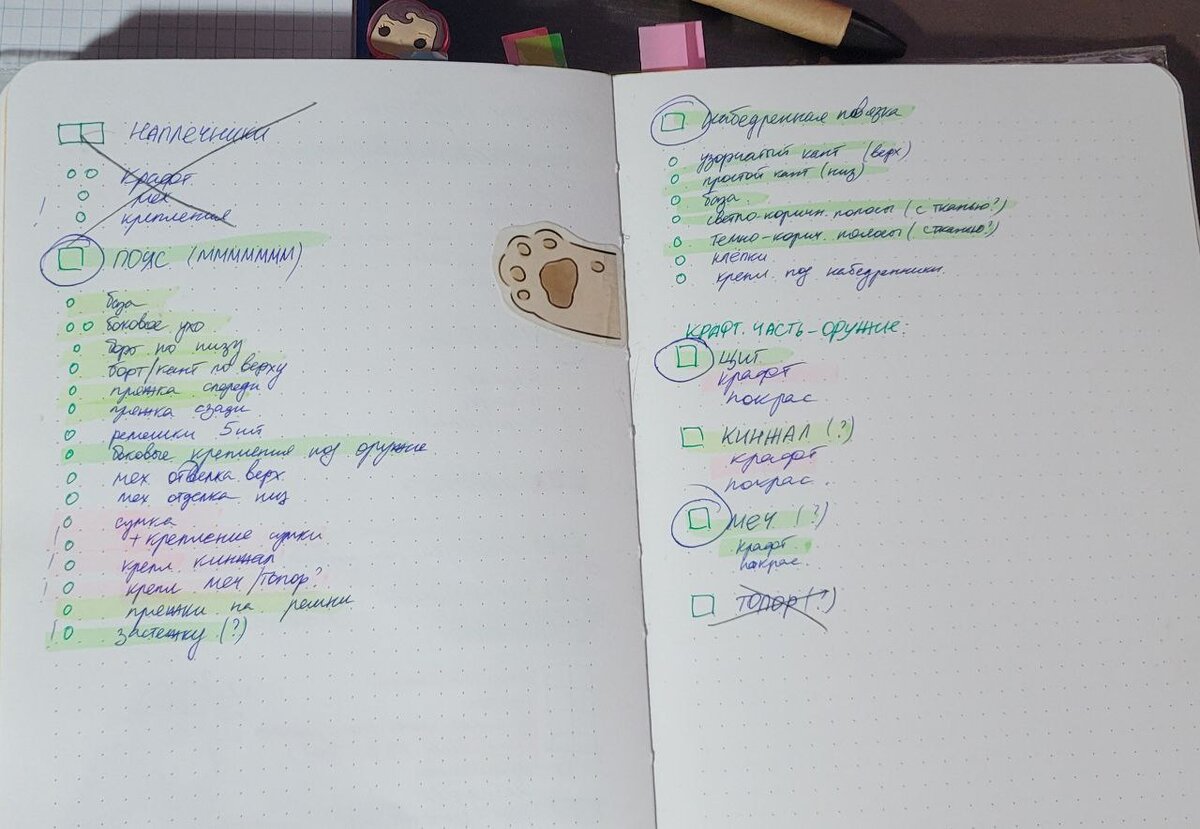 НАПЛЕЧНИКИ
крафт
мех
крепления
ПОЯС (МММММММ)
база
боковое ухо
борт по низу
борт/кант по верху
пряжка спереди
пряжка сзади
ремешки 5шт
боковые крепления под оружие
мех. отделка верх.
мех. отделка низ
сумка
+ крепление сумки
крепл. кинжал
крепл. меч/топор?
пряжки на ремни
застежку (?)
Набедренная повязка
узорчатый кант (верх)
простой кант (низ)
база.
светло-коричн. полосы (с тканью?)
темно-корич. полосы (с тканью?)
клёпки
крепл. под набедренники.
КРАФТ. ЧАСТЬ - ОРУЖИЕ:
ЩИТ
крафт
покрас
КИНЖАЛ (?)
крафт
покрас.
МЕЧ (?)
крафт.
покрас.
ТОПОР (?)